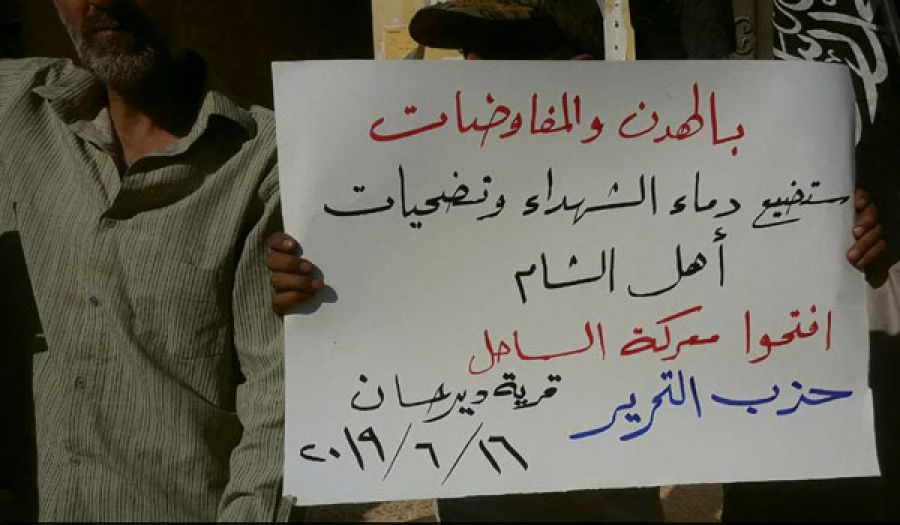 بالهدن والمفاوضات
ستضيع دماء الشهداء وتضحيات
أهل الشام
افتحوا معركة الساحل
حزب التحرير
قرية ديرحسان
١٦/٦/٢٠١٩